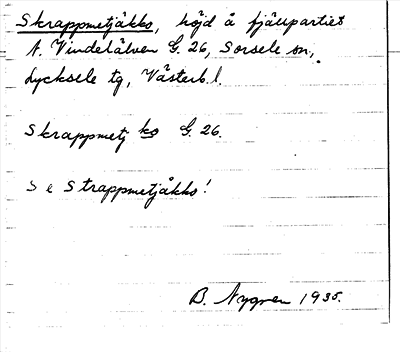 Skrappmetjåkko, höjd å fjällpartiet
N. Vindelälven G. 26, Sorsele sn,
Lycksele tg, Västerb. l.
Skrappmetj ko G. 26.
Se Strappmetjåkko!
B. Nygren 1935.